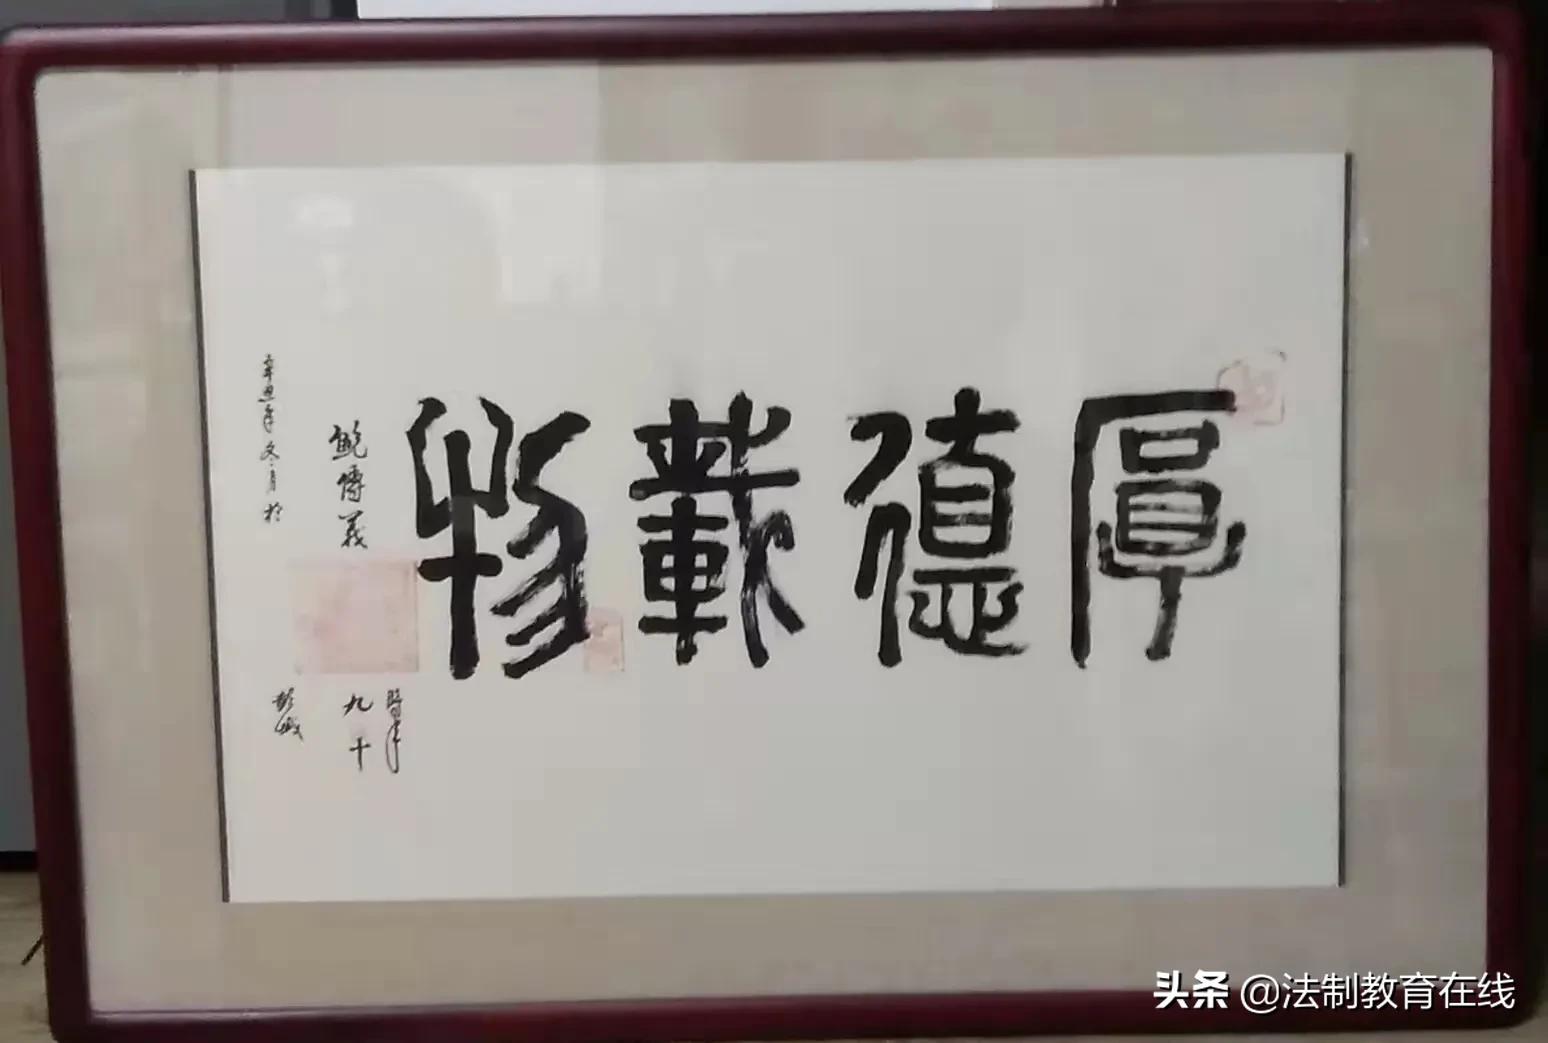 厚德載物
時年
鮑傳義
九十
辛丑年冬月於
彭城
头条 @法制教育在线